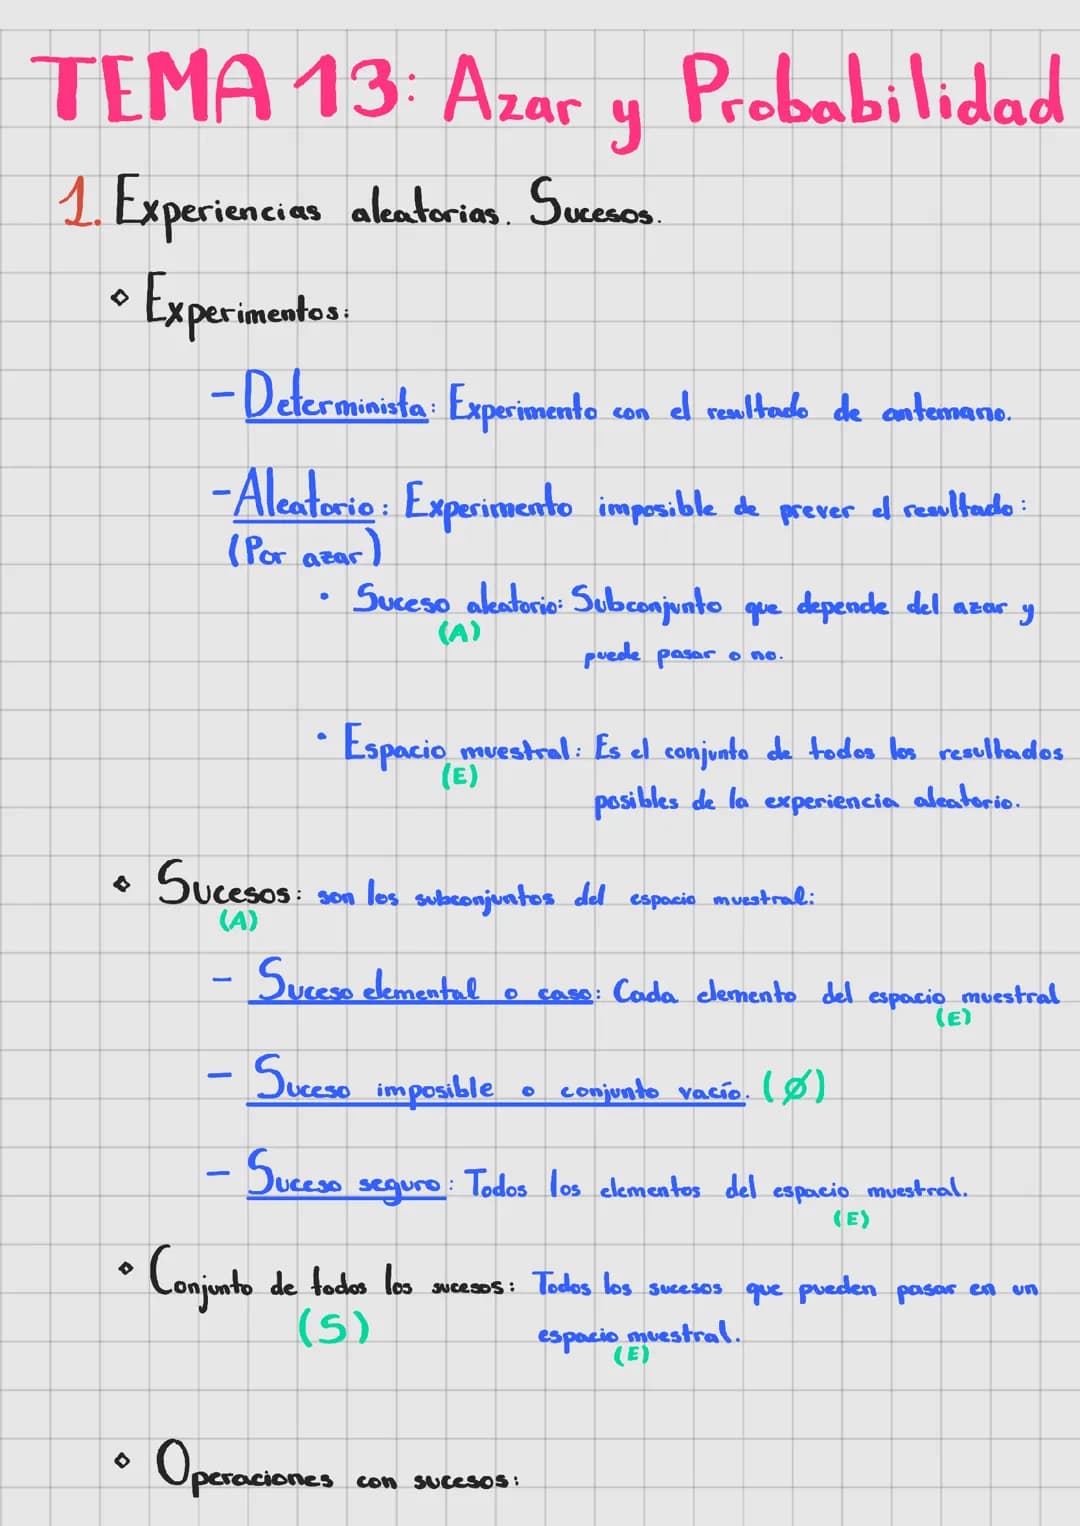 TEMA 13: Azar y Probabilidad
1. Experiencias aleatorias. Sucesos.
Experimentos:
- Determinista: Experimento con el resultado de antemano.
- Aleatorio: Experimento imposible de prever el resultado:
(Por azar)
• Suceso aleatorio: Subconjunto que depende del azar y
(A)
puede pasar o no.
• Espacio muestral: Es el conjunto de todos los resultados
(E)
posibles de la experiencia aleatorio.
Sucesos: son los subconjuntos del espacio muestral:
(A)
- Suceso elemental o caso: Cada elemento del espacio muestral
(E)
- Suceso imposible o conjunto vacío. (Ø)
- Suceso seguro: Todos los elementos del espacio muestral.
(E)
Conjunto de todos los sucesos: Todos los sucesos que pueden pasar en un
(S)
espacio muestral.
(E)
Operaciones con sucesos: